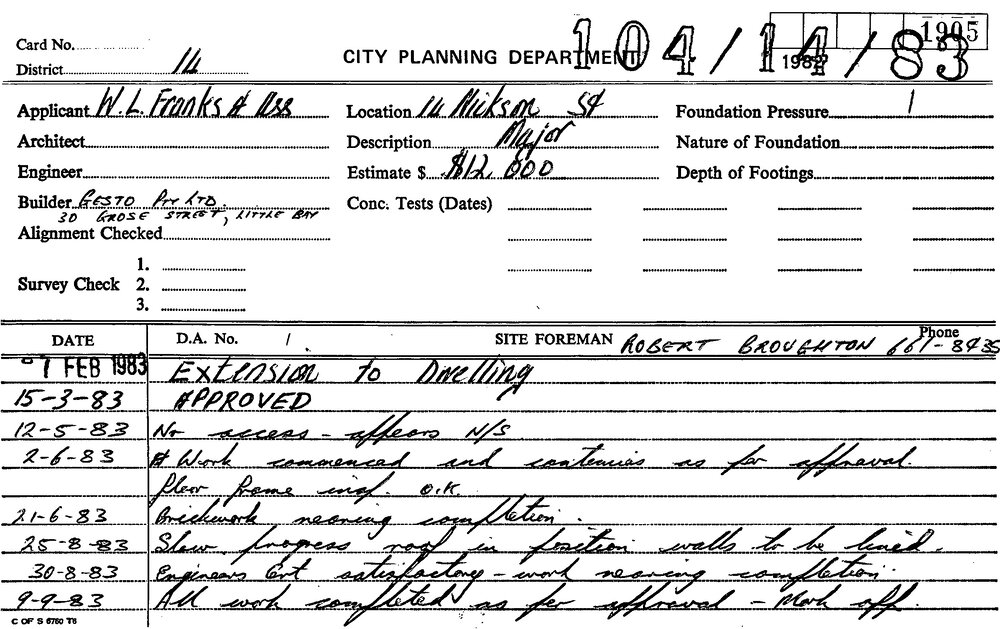 1905
Card No.
CITY PLANNING DEPARTMENT
104/14/83
District 14
Applicant W.L. Franks & Ass
Location 14 Nickson St
Foundation Pressure 1
Architect
Description Major
Nature of Foundation
Engineer
Estimate $ $12 000
Depth of Footings
Builder GESTO PTY LTD.
30 GROSE STREET, LITTLE BAY
Conc. Tests (Dates)
Alignment Checked
Survey Check 1.
2.
3.
DATE D.A. No. / . SITE FOREMAN ROBERT BROUGHTON Phone 661-8435
-7 FEB 1983 Extension to Dwelling
15-3-83 APPROVED
12-5-83 No access - appears N/S
2-6-83 Work commenced and continues as per approval.
floor frame insp. O.K.
21-6-83 Brickwork nearing completion.
25-8-83 Slow progress roof in position walls to be lined.
30-8-83 Engineers Cert satisfactory - work nearing completion.
9-9-83 All work completed as per approval - Mark off.
C OF S 6760 T6